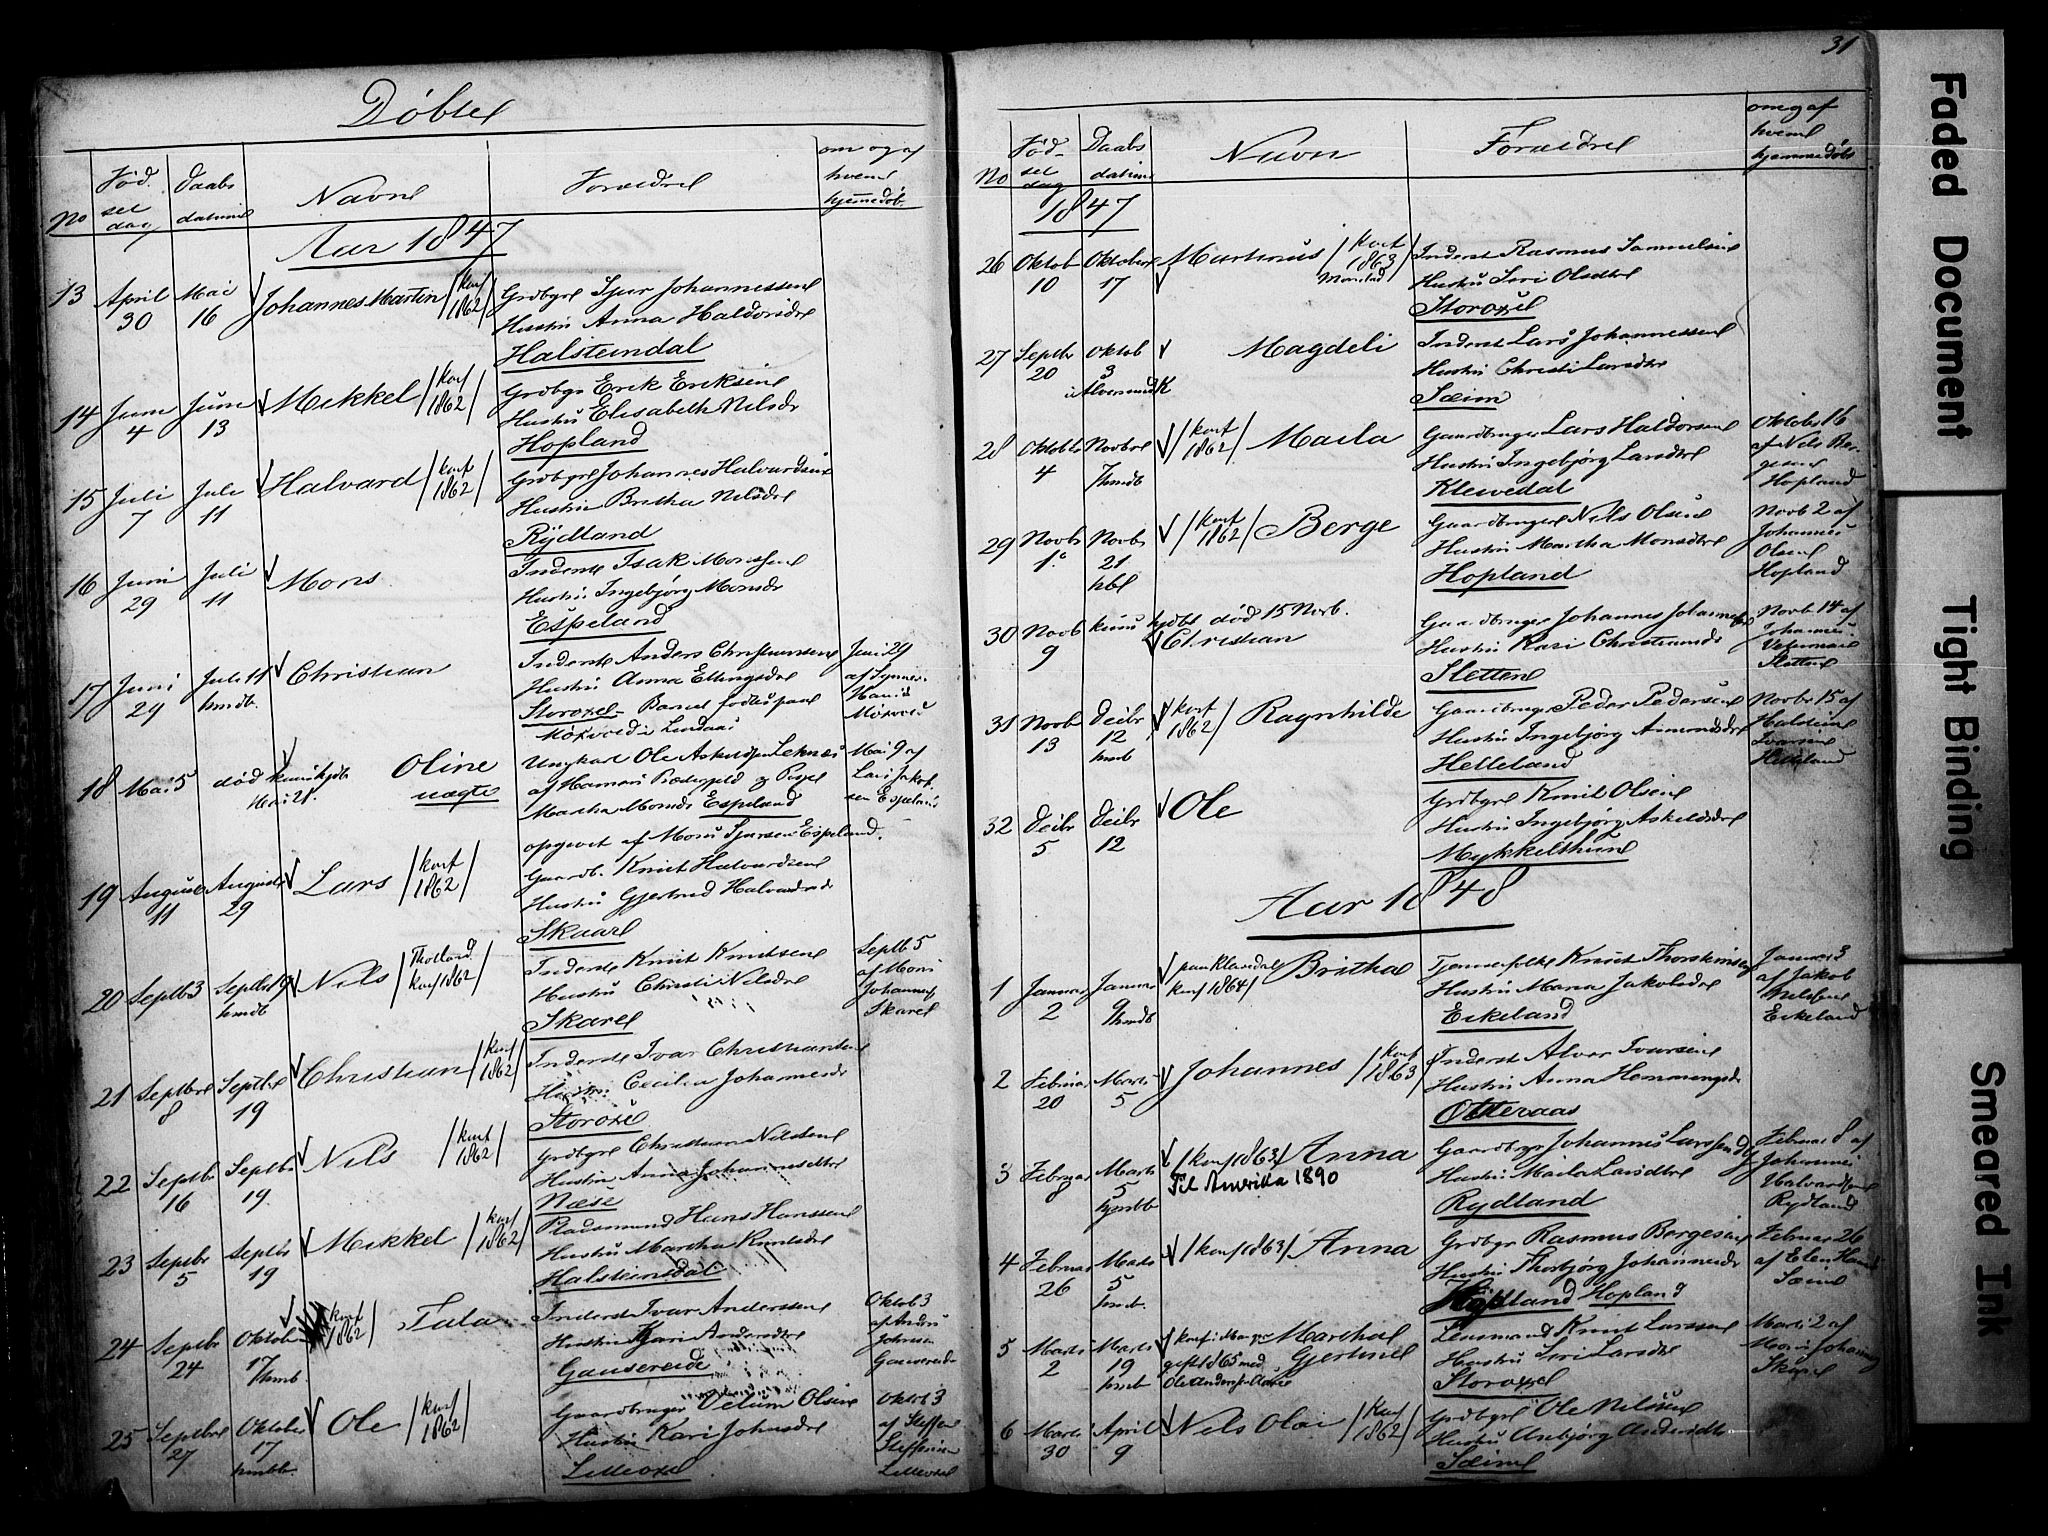 Døbte
No
Fød
sel
dag
Daabs
datum
Navne
Forældre
om og af
hvem
hjemedøb.
Aar 1847
13 April 30 Mai 16 Johannes Martin /konf 1862/
Grdbgr Sjur Johannessen
Hustru Anna Haldorsdr
Halsteindal
14 Juni 4 Juni 13 Mikkel /konf 1862/
Grdbgr Erik Eriksen
Hustru Elisabeth Nilsdr
Hopland
15 Juli 7 Juli 11 Halvard /konf 1862/
Grdbgr Johannes Halvardsen
Hustru Britha Nilsdr
Rydland
16 Juni 29 Juli 11 Mons
Inderst Isak Monsen
Hustru Ingebjørg Monsdr
Espeland
17 Juni 29 Juli 11 hmdb. Christian
Inderste Anders Christiansen
Hustru Anna Ellingsdr
Storoxel
Juni 29
af
18 Mai 5 død Mai 21. Oline uægte
Ungkarl Ole Askeldsen Leknes
af Hammers Præstegjeld og Pigen
Martha Monsdr Espeland
opgivet af Mons Sjursen Espeland.
Mai 9 af
Lars Jakob
sen Espeland
19 August 11 August 29 Lars /konf 1862/
Gaardb. Knut Halvardsen
Hustru Gjertrud Halvardsdr
Skaare
20 Septb 3 Septbr 19 hmdb Nils /konf 1862/
Inderste Knut Knutsen
Hustru Christi Nilsdr
Skarel
Septb 5
af Mons
Johannes
Skarel
21 Septbr 8 Septbr 19 Christian /konf 1862/
Inderste Ivar Christiansen
Hustru Cecilia Johannesdr
Storoxel
22 Septbr 16 Septbr 19 Nils /konf 1862/
Grdbgr Christian Nilsen
Hustru Anna Johannesdtr
Næse
23 Septbr 5 Septbr 19 Mikkel /konf 1862/
Pladsmand Hans Hanssen
Hustru Martha Knutsdr
Halsteinsdal
24 Septbr 24 Oktober 17 hmb konf 1862/
Inderst Ivar Anderssen
Hustru Kari Andersdtr
Gausereide
Oktob 3
af Anders
Johnsen
Gausereide
25 Septbr 27 Oktober 17 Ole /konf 1862/
Gaardbruger Villum Olsen
Hustru Kari Johnsdr
Lilleoxel
Oktob 3
af Steffen
Steffensen
Lilleoxel
31
No
Fød-
sel
dag
Daabs
datum
Navn
Forældre
om og af
hvem
hjemmedøbt
1847
26 Oktob 10 Oktober 17 Martinus /konf 1863/
Inderst Rasmus Samuelsen
Hustru Siri Olsdtr
Storoxel
27 Septbr 20 Oktob 3 Magdeli
Inderst Lars Johannessen
Hustru Christi Larsdtr
Sæim
28 Oktobr 4 Novbr 7 hmdb /konf 1862/ Marta
Gaardbruger Lars Haldorsen
Hustru Ingebjørg Larsdtr
Klevedal
Oktobr 16
af Nils Ber-
gesen
Hopland
29 Novbr 1 Novbr 21 /konf 1862/ Berge
Gaardbruger Nils Olsen
Hustru Martha Monsdtr
Hopland
Novb 2 af
Johannes
Olsen
Hopland
30 Novb 9 kuns hjdbt død 15 Novb.
Christian
Gaardbruger Johannes Johannes
Hustru Kari Christiansdr
Sletten
Novb 14 af
Johannes
Sletten
31 Novbr 13 Decbr 12 hmb /konf 1862/ Ragnhilde
Gaardbruger Peder Pedersen
Hustru Ingebjørg
Helleland
Novbr 15 af
Halstein
Iversen
Helleland
32 Decbr 5 Decbr 12 Ole
Grdbgr Knut Olsen
Hustru Ingebjørg Askeldsdtr
Mykkelthun
Aar 1848
1 Januar 2 Januar 9 hmdb konf 1864/ Britha
Tjenestefolk Knut Thorsteinsen
Hustru Maria Jakobsdtr
Eikeland
Januar 3
af Jakob
Nilssen
Eikeland
2 Februar 20 Marts 5 Johannes /konf 1863/
Inderst Alver Ivarsen
Hustru Anna Hemmingsdr
Otteraas
3 Februar 8 Marts 5 /konf 1863/ Anna
Til Amerika 1890
Gaardbgr Johannes Larssen
Hustru Marta Larsdtr
Rydland
Februar 8 af
Johannes
Halvardsen
Rydland
4 Februar 26 Marts 5 hmb /konf 1863/ Anna
Grdbgr Rasmus Bergesen
Hustru Thorbjørg Johannesdr
Hopland Hopland
Februar 26
af Elen Hans
Sæim
5 Marts 2 Marts 19 hmb
gift 1865 med
Martha
Gjertrud
Lensmand Knut Larssen
Hustru Siri Larsdtr
Storoxel
Marts 2 af
Mons Johannes
6 Marts 30 April 9 Nils Olai /konf 1862/
Grdbgr Ole Nilsen
Hustru Anbjørg Andersdtr
Sæim
Faded Document
Tight Binding
Smeared Ink